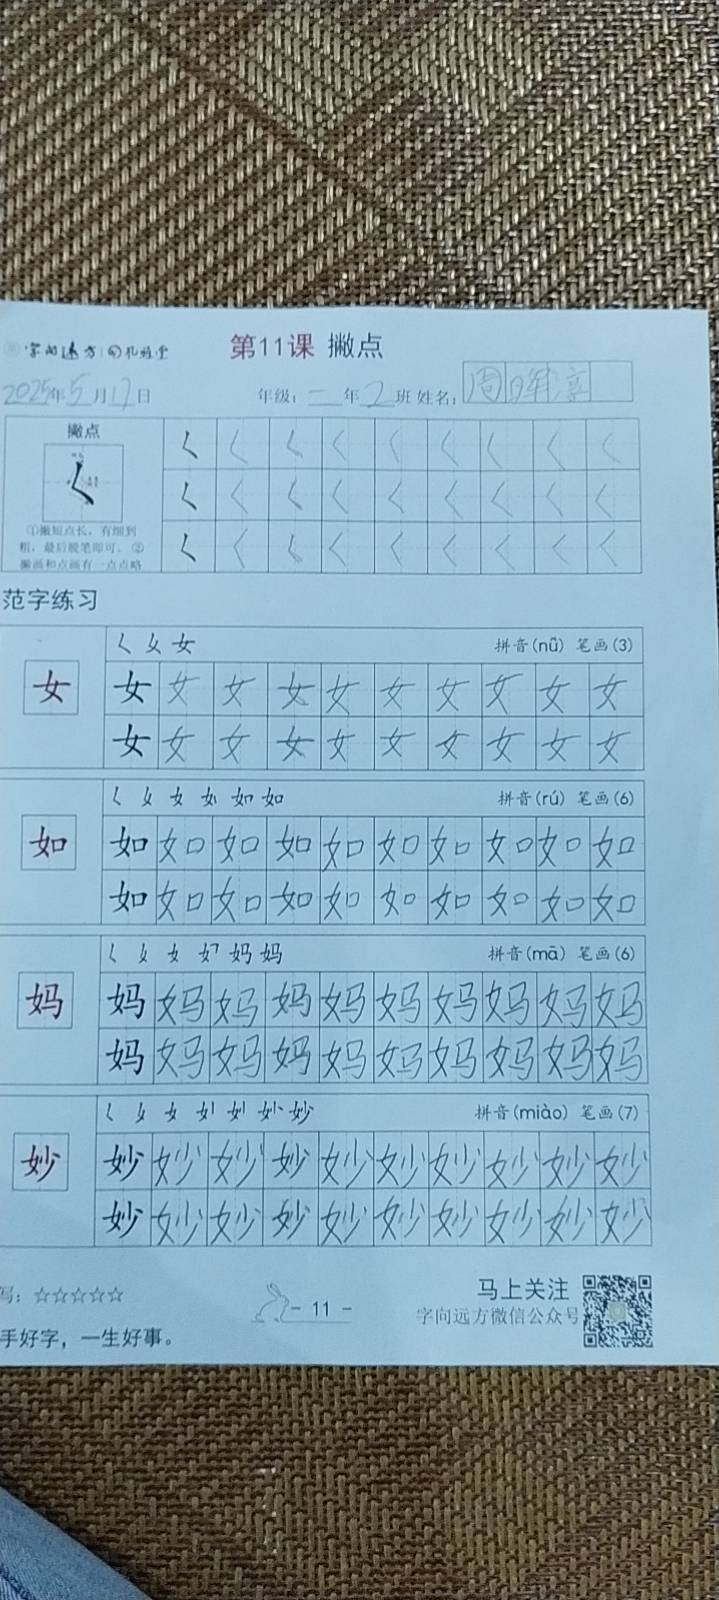 字向远方
第11课 撇点
2025年5月17日 年级：一年2班 姓名：周
撇点 ㄑ ㄑ ㄑ ㄑ ㄑ ㄑ ㄑ ㄑ ㄑ
ㄑ ㄑ ㄑ ㄑ ㄑ ㄑ ㄑ ㄑ ㄑ
ㄑ ㄑ ㄑ ㄑ ㄑ ㄑ ㄑ ㄑ ㄑ
①撇短点长，有细到
粗，最后脱笔即可。②
撇画和点画有一点点略
范字练习
ㄑ 女 女 拼音(nǚ) 笔画(3)
女 女 女 女 女 女 女 女 女 女 女
女 女 女 女 女 女 女 女 女 女
拼音(rú) 笔画(6)
如 如 如 如 如 如 如 如 如 如 如
如 如 如 如 如 如 如 如 如 如
拼音(mā) 笔画(6)
妈 妈 妈 妈 妈 妈 妈 妈 妈 妈 妈
妈 妈 妈 妈 妈 妈 妈 妈 妈 妈
拼音(miào) 笔画(7)
妙 妙 妙 妙 妙 妙 妙 妙 妙 妙 妙
妙 妙 妙 妙 妙 妙 妙 妙 妙 妙
写：☆☆☆☆☆
手好字，一生好事。
- 11 -
马上关注
字向远方微信公众号